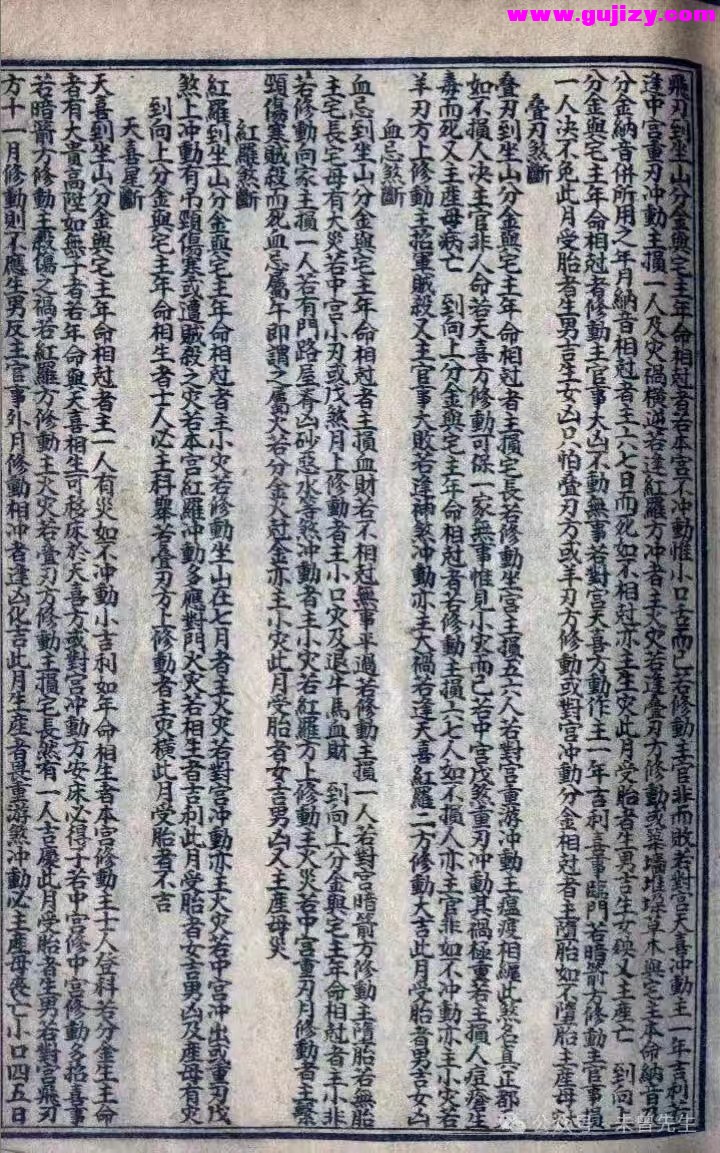 www.gujizy.com
飛刃到坐山分金與宅主年命相尅者若本宮不冲動惟小口舌而已若修動主官非而敗若對宮天喜冲動主一年吉利若
逢中宮重刃冲動主損一人及灾禍橫逆若逢紅羅方冲者主火灾若逢叠刃方修動或築墻堆垛草木與宅主本命納音
分金納音併所用之年月納音相尅者主六七日而死如不相尅亦主生灾此月受胎者生男吉生女缺又主產亡 到向
分金與宅主年命相尅者修動主官事大凶不動無事若對宮天喜方動作主一年吉利喜事臨門若暗箭方修動主官事損
一人决不免此月受胎者生男吉生女凶只怕叠刃方或羊刃方修動或對宮冲動分金相尅者主墮胎如不墮胎主產母灾
叠刃煞斷
叠刃到坐山分金與宅主年命相尅者主損宅長若修動坐宮主損五六人若對宮重游冲動主瘟疫相纏此煞名真正都
如不損人决主官非人命若天喜方修動可保一家無事惟見小灾而已若中宮戊煞重刃冲動其禍極重若主損人痘瘡生
毒而死又主產母病亡 到向上分金與宅主年命相尅者若修動主損六七人如不損人亦主官非如不冲動亦主小灾若
羊刃方上修動主招軍賊殺又主官事大敗若逢禍煞冲動亦主大禍若逢天喜紅羅二方修動大吉此月受胎者男吉女凶
血忌煞斷
血忌到坐山分金與宅主年命相尅者主損血財若不相尅無事平過若修動主損一人若對宮暗箭方修動主墮胎若無胎
主宅長宅母有大災若中宮小刃或戊煞月上修動者主小口灾及退牛馬血財 到向上分金與宅主年命相尅者主小非
若修動向家主損一人若有門路屋脊凶砂惡水等煞冲動者主小灾若紅羅方上修動主火災若中宮重刃月修動者主繫
頸傷寒賊殺而死血忌屬午即謂之屬火若分金火尅金亦主小灾此月受胎者女吉男凶又主產母災
紅羅煞斷
紅羅到坐山分金與宅主年命相尅者主小灾若修動坐山在七月者主火灾若對宮冲動亦主火灾若中宮冲出或重刃戊
煞上冲動有吊頸傷寒或遭賊殺之灾若本宮紅羅冲動多應對門火灾若相生者吉利此月受胎者女吉男凶及產母有灾
到向上分金與宅主年命相生者士人必主科舉若叠刃方上修動者主灾橫此月受胎者不吉
天喜星斷
天喜到坐山分金與宅主年命相尅者主一人有災如不冲動小吉利如年命相生者本宮修動主士人登科若分金生主命
者有大貴高陞如無子者若年命與天喜相生可移床於天喜方或對宮冲動方安床必得子若中宮修中宮修動多招喜事
若暗箭方修動主殺傷之禍若紅羅方修動主火灾若叠刃方修動主損宅長然有一人吉慶此月受胎者生男若對宮飛刃
方十一月修動則不應生男反主官事外月修動相冲者逢凶化吉此月生產者畏重游煞冲動必主產母凌亡小口四五日
公众号·未曾先生